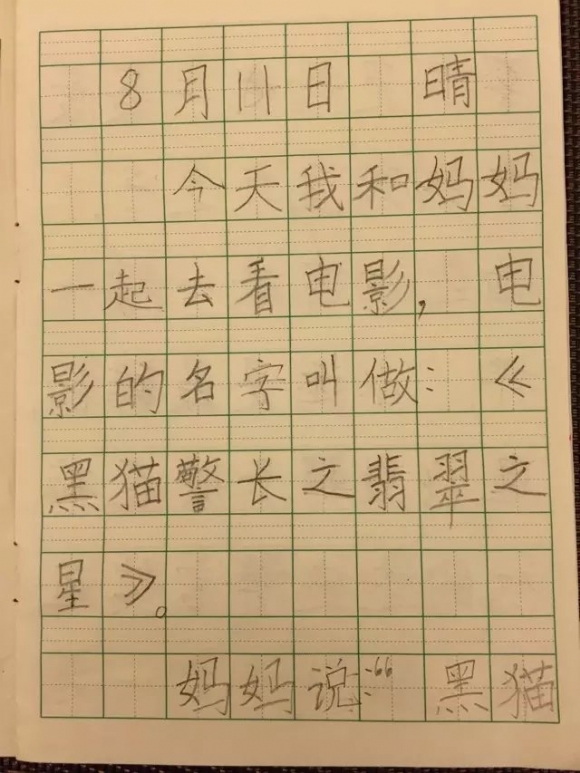 8月11日 晴
今天我和妈妈
一起去看电影，电
影的名字叫做：《
黑猫警长之翡翠之
星》。
妈妈说：“黑猫